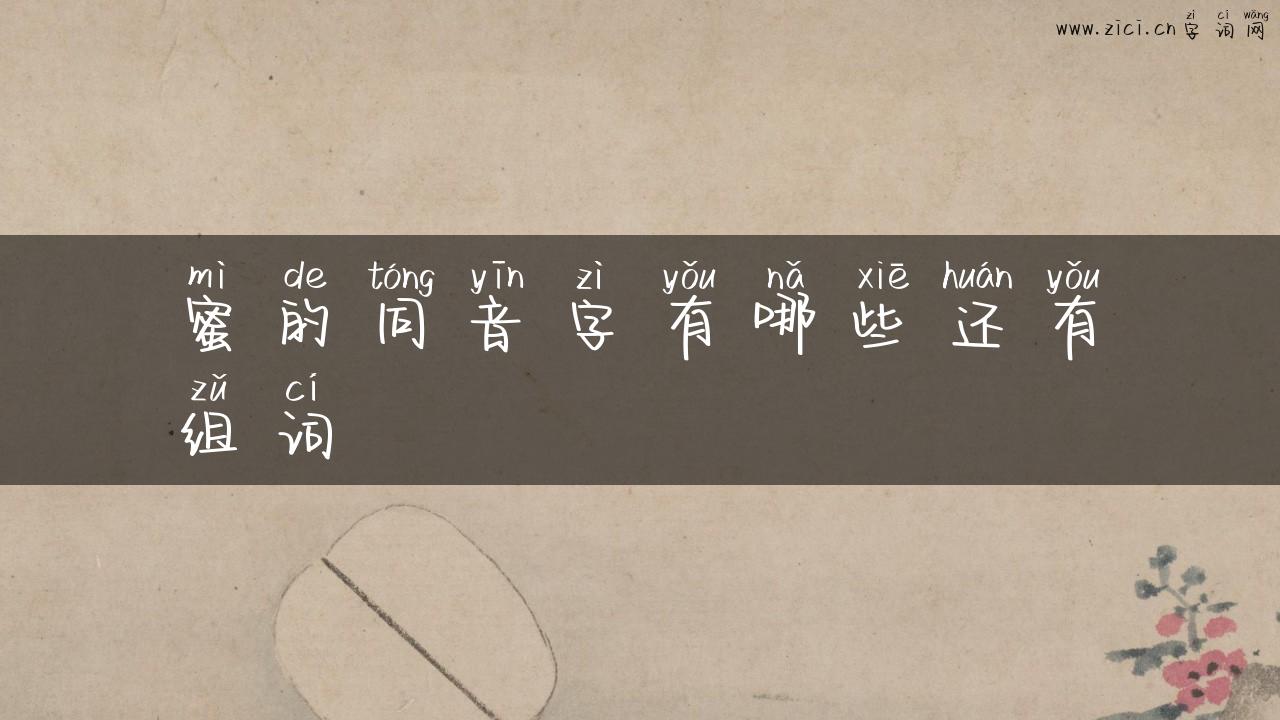 zì cí wǎng
www.zici.cn 字词网
mì de tóng yīn zì yǒu nǎ xiē huán yǒu
蜜的同音字有哪些还有
zǔ cí
组词